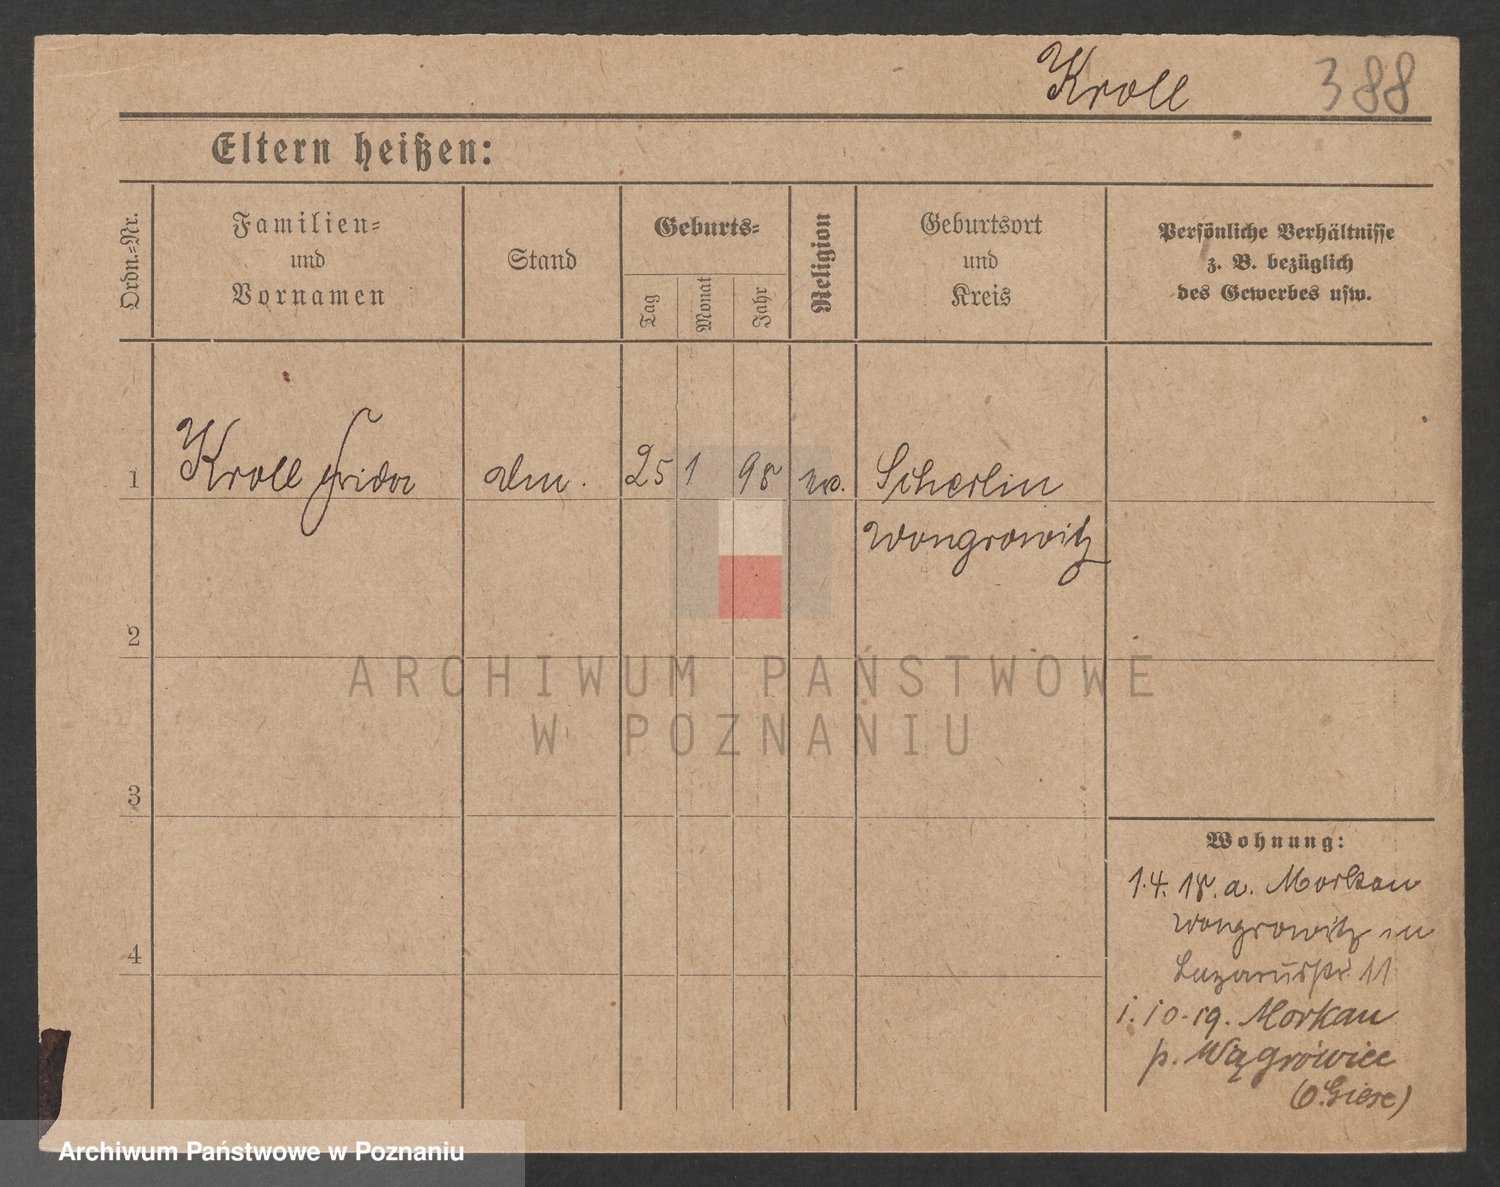 Kroll 388
Eltern heißen:
Ordn.-Nr.
Familien-
und
Vornamen
Stand
Geburts-
Tag
Monat
Jahr
Religion
Geburtsort
und
Kreis
Persönliche Verhältnisse
z. B. bezüglich
des Gewerbes usw.
1 Kroll Frida 25 1 98 Scherlin
Wongrowitz
2
3
4
ARCHIWUM PAŃSTWOWE
W POZNANIU
Wohnung:
1.4.18. a. Morkau
Wongrowitz in
Lazarusstr. 11
1.10.19. Morkau
p. Wągrówiec
(O. Giese)
Archiwum Państwowe w Poznaniu